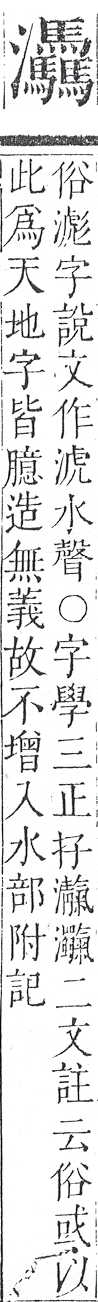 俗滮字說文作淲水聲○字學三正二文註云俗或以
此爲天地字皆臆造無義故不增入水部附記